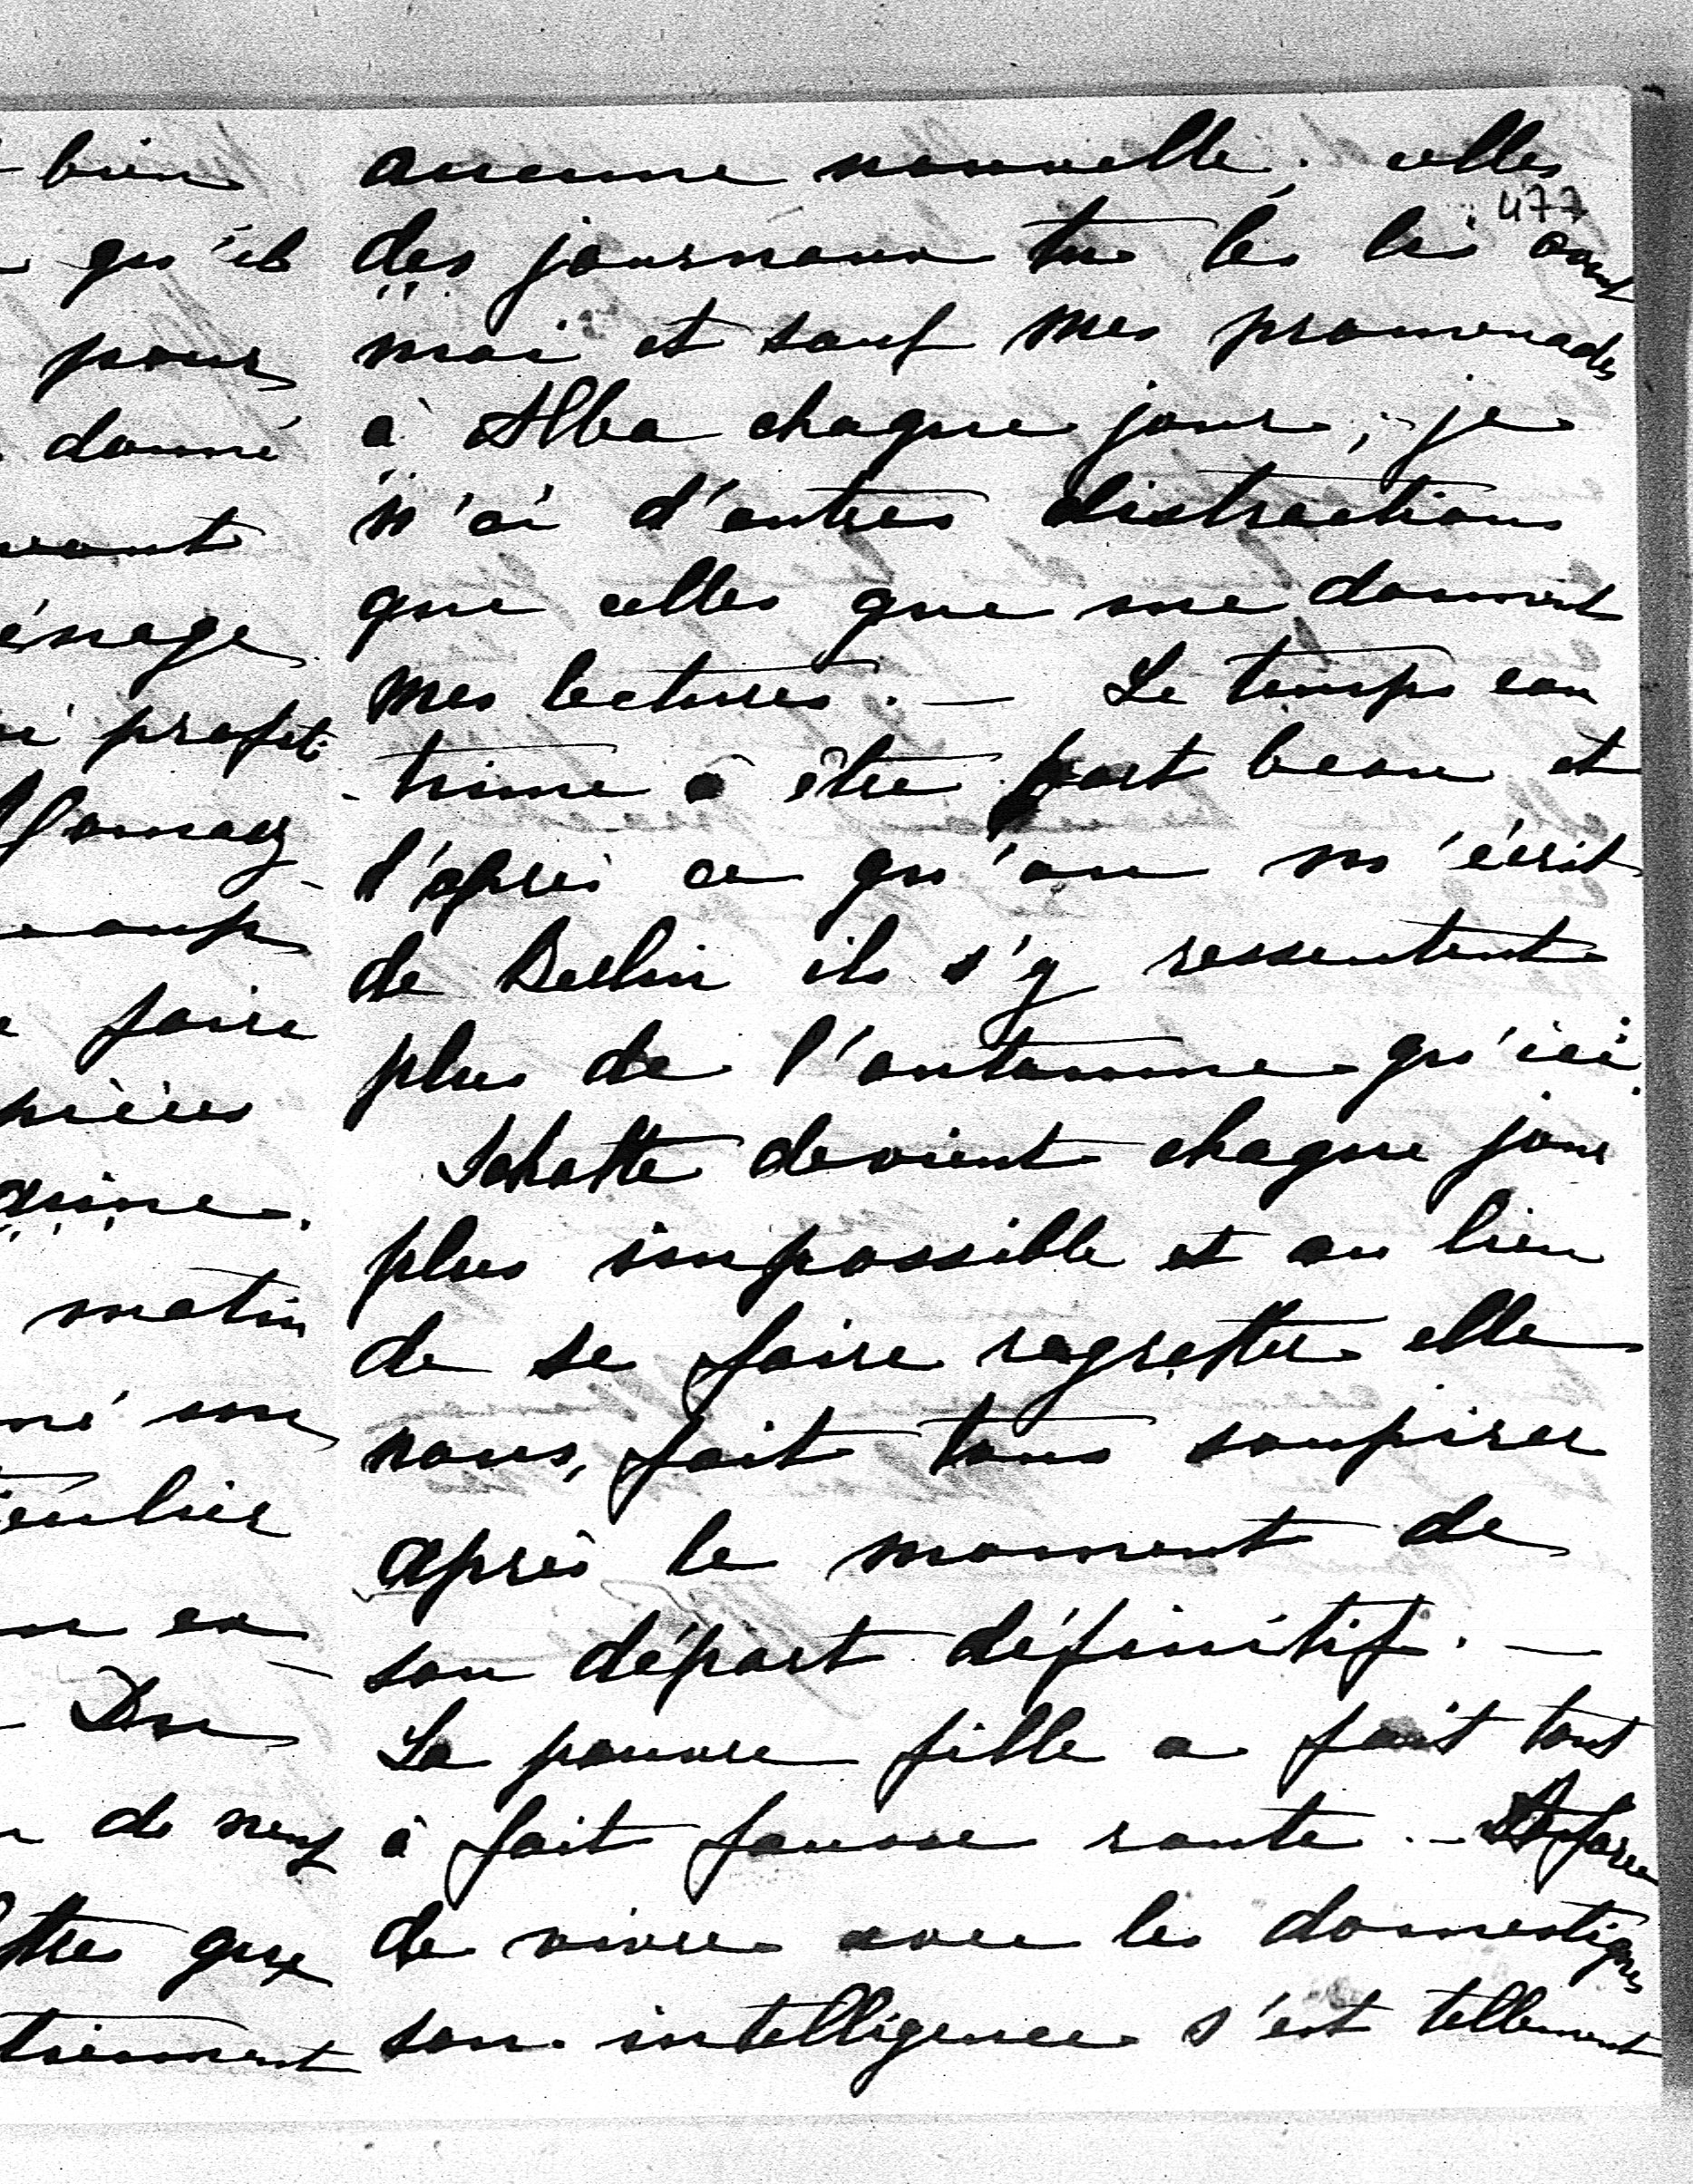 bien
qu'il
pour
donné
vant
énage
profit
faire
pièces
matin
né une
en
Du
de neuf
ttre que
tiennent
477
aucune nouvelle; celles
des journaux tu les lis avant
moi et sauf mes promenades
à Alba chaque jour, je
n'ai d'autres distractions
que celles que me donnent
mes lectures. — Le temps con
-tinue à être fort beau et
d'après ce qu'on m'écrit
de Berlin ils s'y ressentent
plus de l'automne qu'ici.
Schotte devient chaque jour
plus impossible et au lieu
de se faire regretter elle
nous, fait tous soupirer
après le moment de
son départ définitif. —
La pauvre fille a fait tout
à fait fausse route. — A force
de vivre avec les domestiques
son intelligence s'est tellement